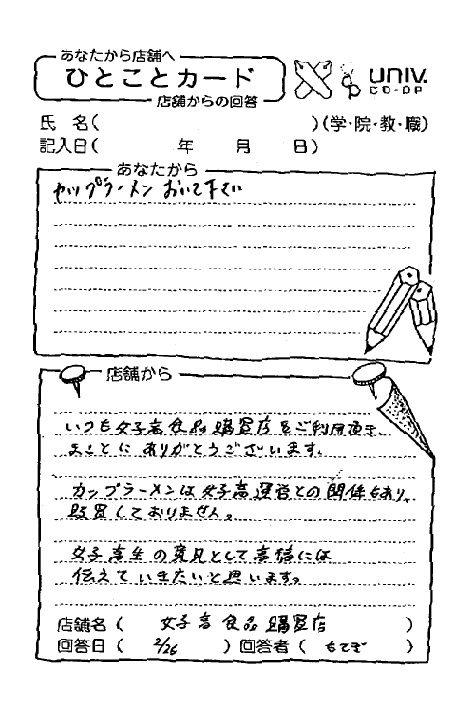 あなたから店舗へ
ひとことカード
店舗からの回答
UNIV.
CO-OP
氏 名( )(学・院・教・職)
記入日( 年 月 日)
あなたから
カップラーメン おいて下さい
店舗から
いつも女子寮食品購買店をご利用頂き、
まことにありがとうございます。
カップラーメンは女子寮運営との関係もあり、
販買しておりません。
女子寮生の意見として
伝えていきたいと思います。
店舗名( 女子寮食品購買店 )
回答日( 2/26 )回答者( もてぎ )